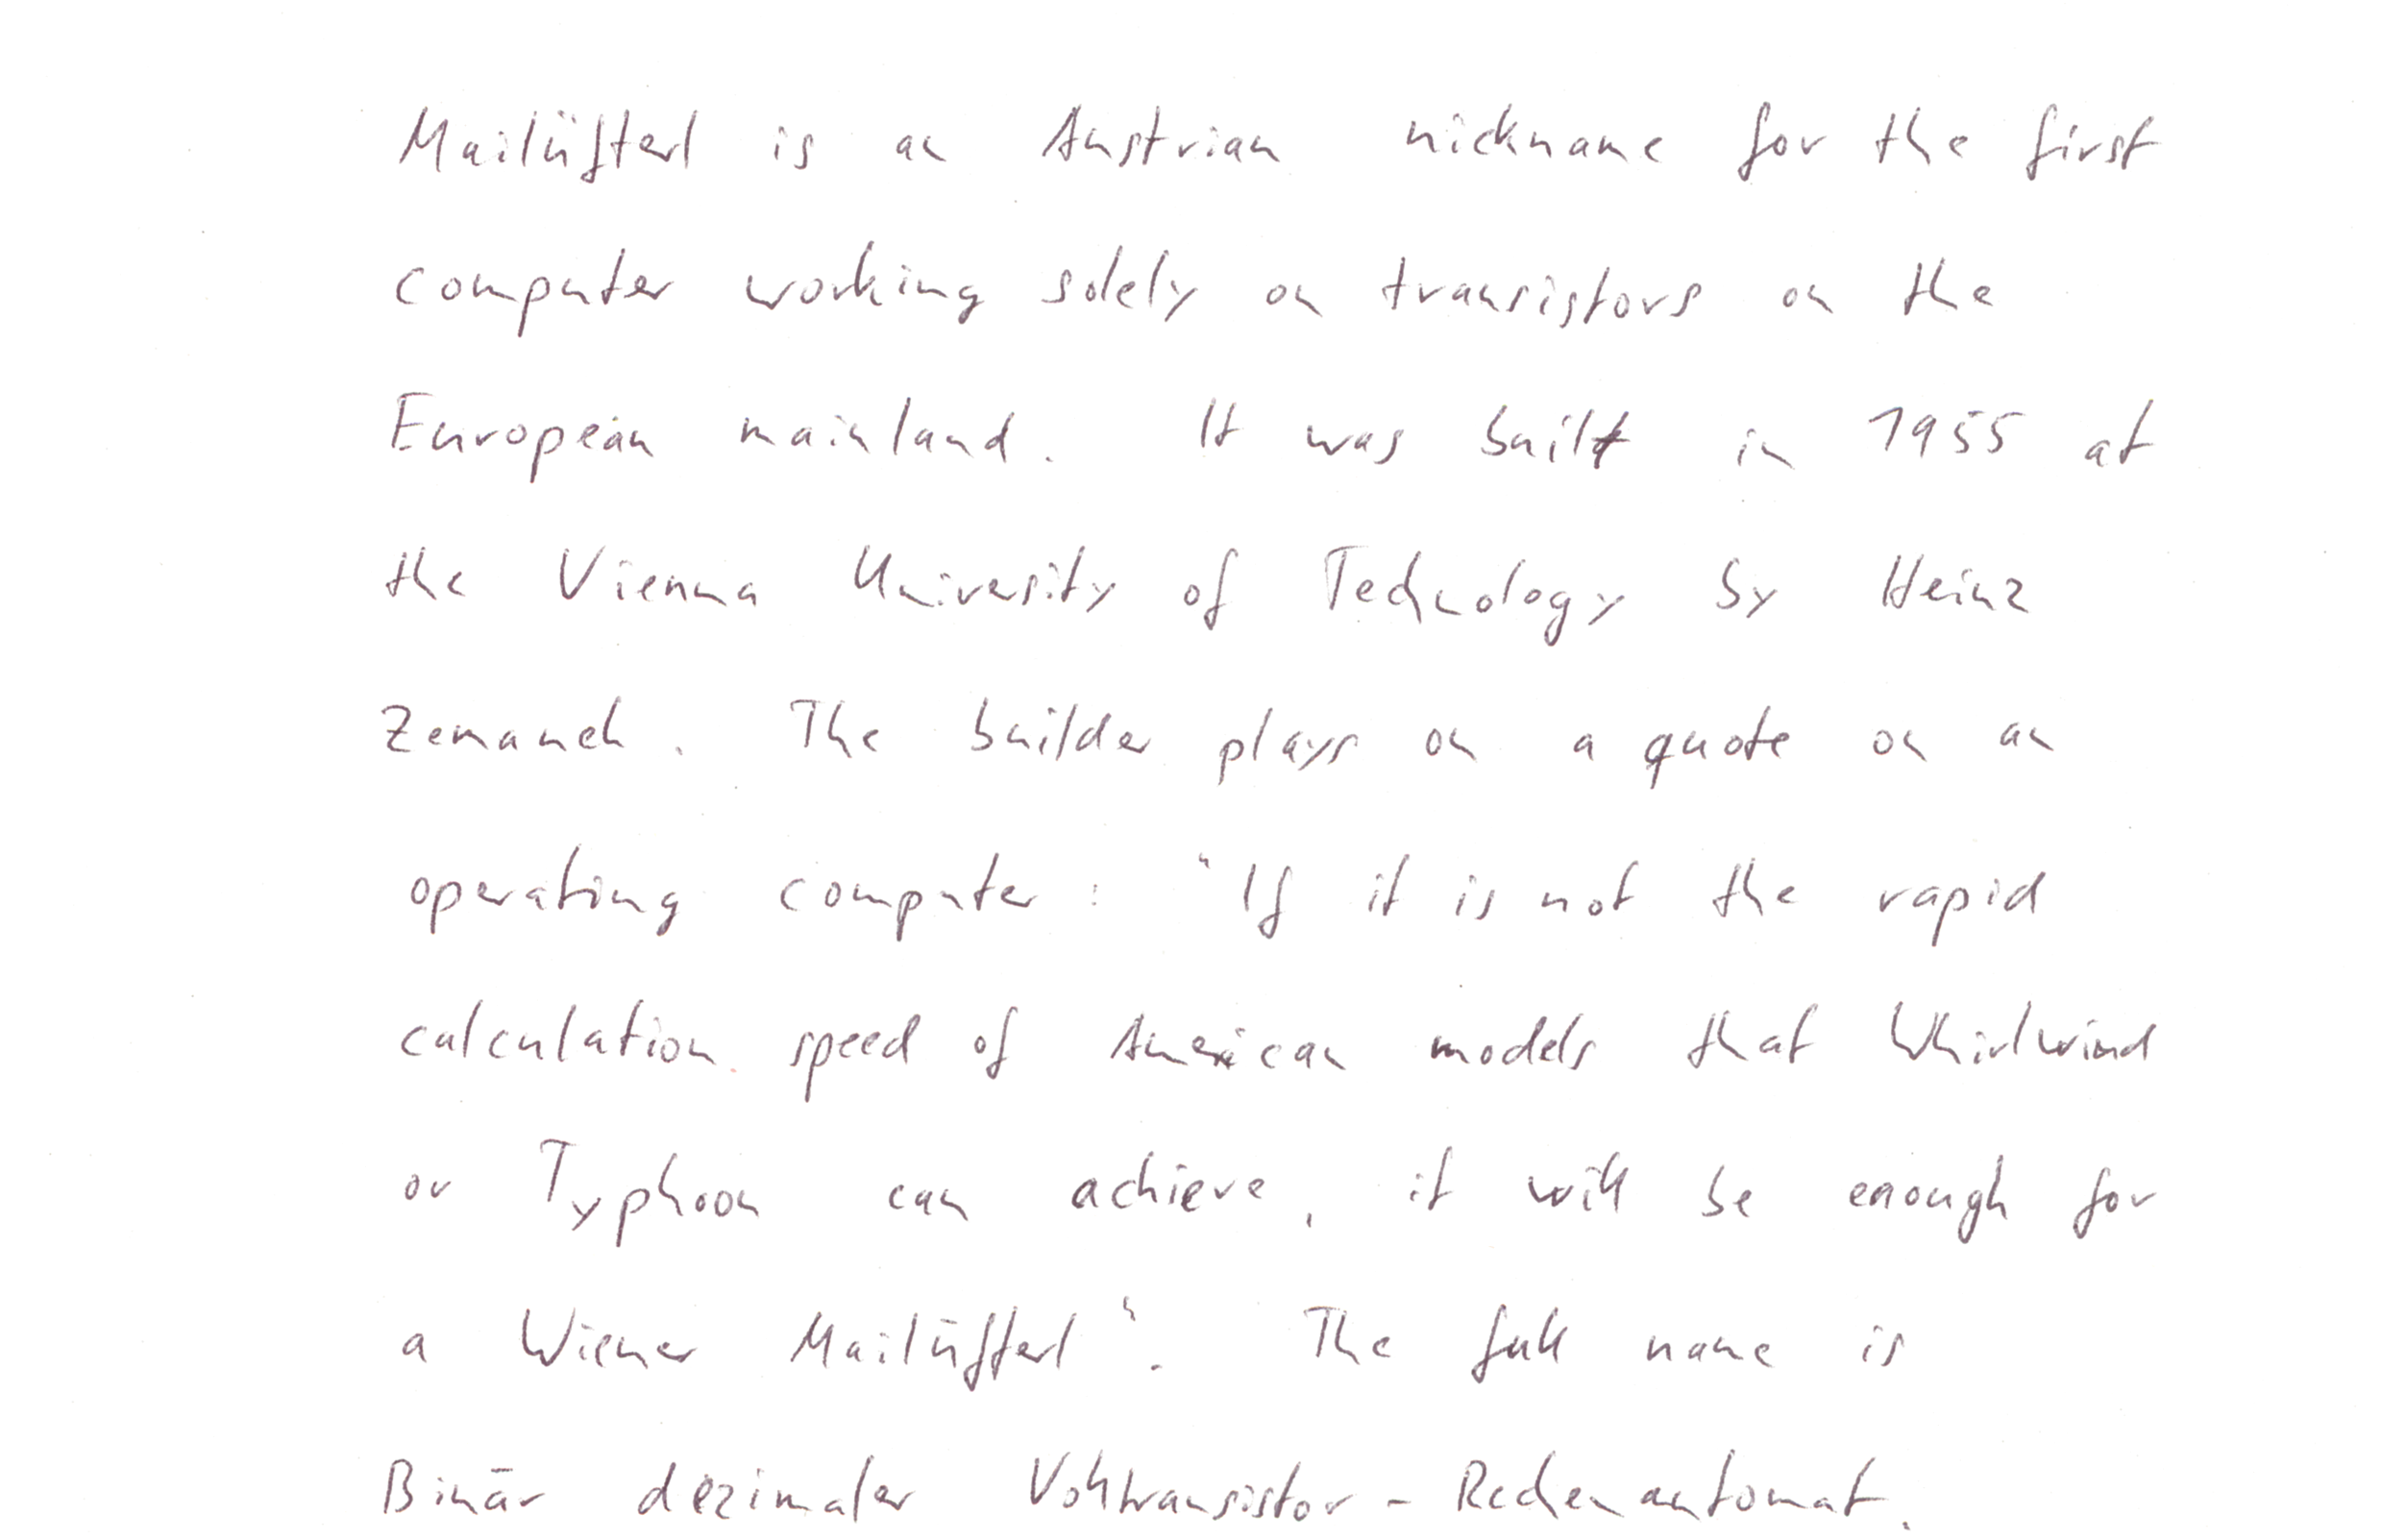 Mailüfterl is an Austrian nickname for the first
computer working solely on transistors on the
European mainland. It was built in 1955 at
the Vienna University of Technology by Heinz
Zemanek. The builder plays on a quote on an
operating computer: "If it is not the rapid
calculation speed of American models that Whirlwind
or Typhoon can achieve, it will be enough for
a Wiener Mailüfterl". The full name is
Binär dezimaler Volltransistor-Rechenautomat.